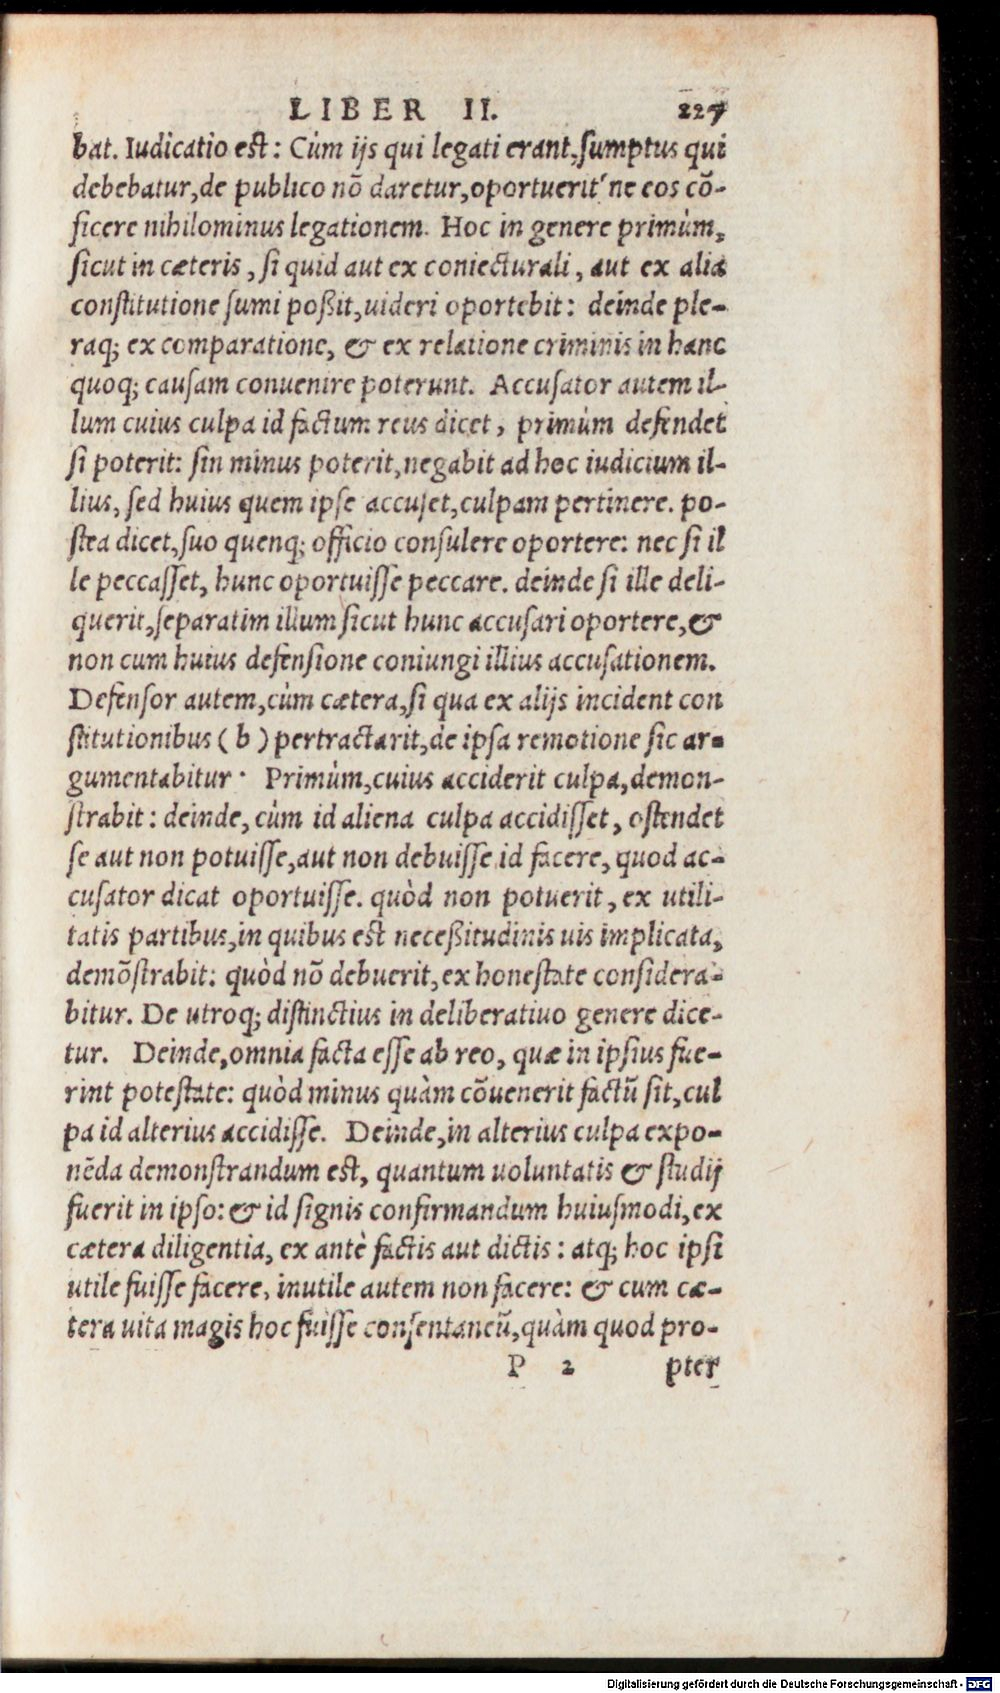 LIBER II. 227
bat. Iudicatio est: Cùm ijs qui legati erant, sumptus qui
debebatur, de publico nō daretur, oportuerit'ne eos cō-
ficere nihilominus legationem. Hoc in genere primùm,
sicut in cæteris, si quid aut ex coniecturali, aut ex alia
constitutione sumi poßit, uideri oportebit: deinde ple-
raq; ex comparatione, & ex relatione criminis in hanc
quoq; causam conuenire poterunt. Accusator autem il-
lum cuius culpa id factum reus dicet, primùm defendet
si poterit: sin minus poterit, negabit ad hoc iudicium il-
lius, sed huius quem ipse accuset, culpam pertinere. po-
stea dicet, suo quenq; officio consulere oportere: nec si il
le peccasset, hunc oportuisse peccare. deinde si ille deli-
querit, separatim illum sicut hunc accusari oportere, &
non cum huius defensione coniungi illius accusationem.
Defensor autem, cùm cætera, si qua ex alijs incident con
stitutionibus ( b ) pertractarit, de ipsa remotione sic ar-
gumentabitur· Primùm, cuius acciderit culpa, demon-
strabit: deinde, cùm id aliena culpa accidisset, ostendet
se aut non potuisse, aut non debuisse id facere, quod ac-
cusator dicat oportuisse. quòd non potuerit, ex utili-
tatis partibus, in quibus est neceßitudinis uis implicata,
demōstrabit: quòd nō debuerit, ex honestate considera-
bitur. De utroq; distinctius in deliberatiuo genere dice-
tur. Deinde, omnia facta esse ab reo, quæ in ipsius fue-
rint potestate: quòd minus quàm cōuenerit factū sit, cul
pa id alterius accidisse. Deinde, in alterius culpa expo-
nēda demonstrandum est, quantum uoluntatis & studij
fuerit in ipso: & id signis confirmandum huiusmodi, ex
cætera diligentia, ex antè factis aut dictis: atq; hoc ipsi
utile fuisse facere, inutile autem non facere: & cum cæ-
tera uita magis hoc fuisse consentaneū, quàm quod pro-
P 2 pter
Digitalisierung gefördert durch die Deutsche Forschungsgemeinschaft - DFG